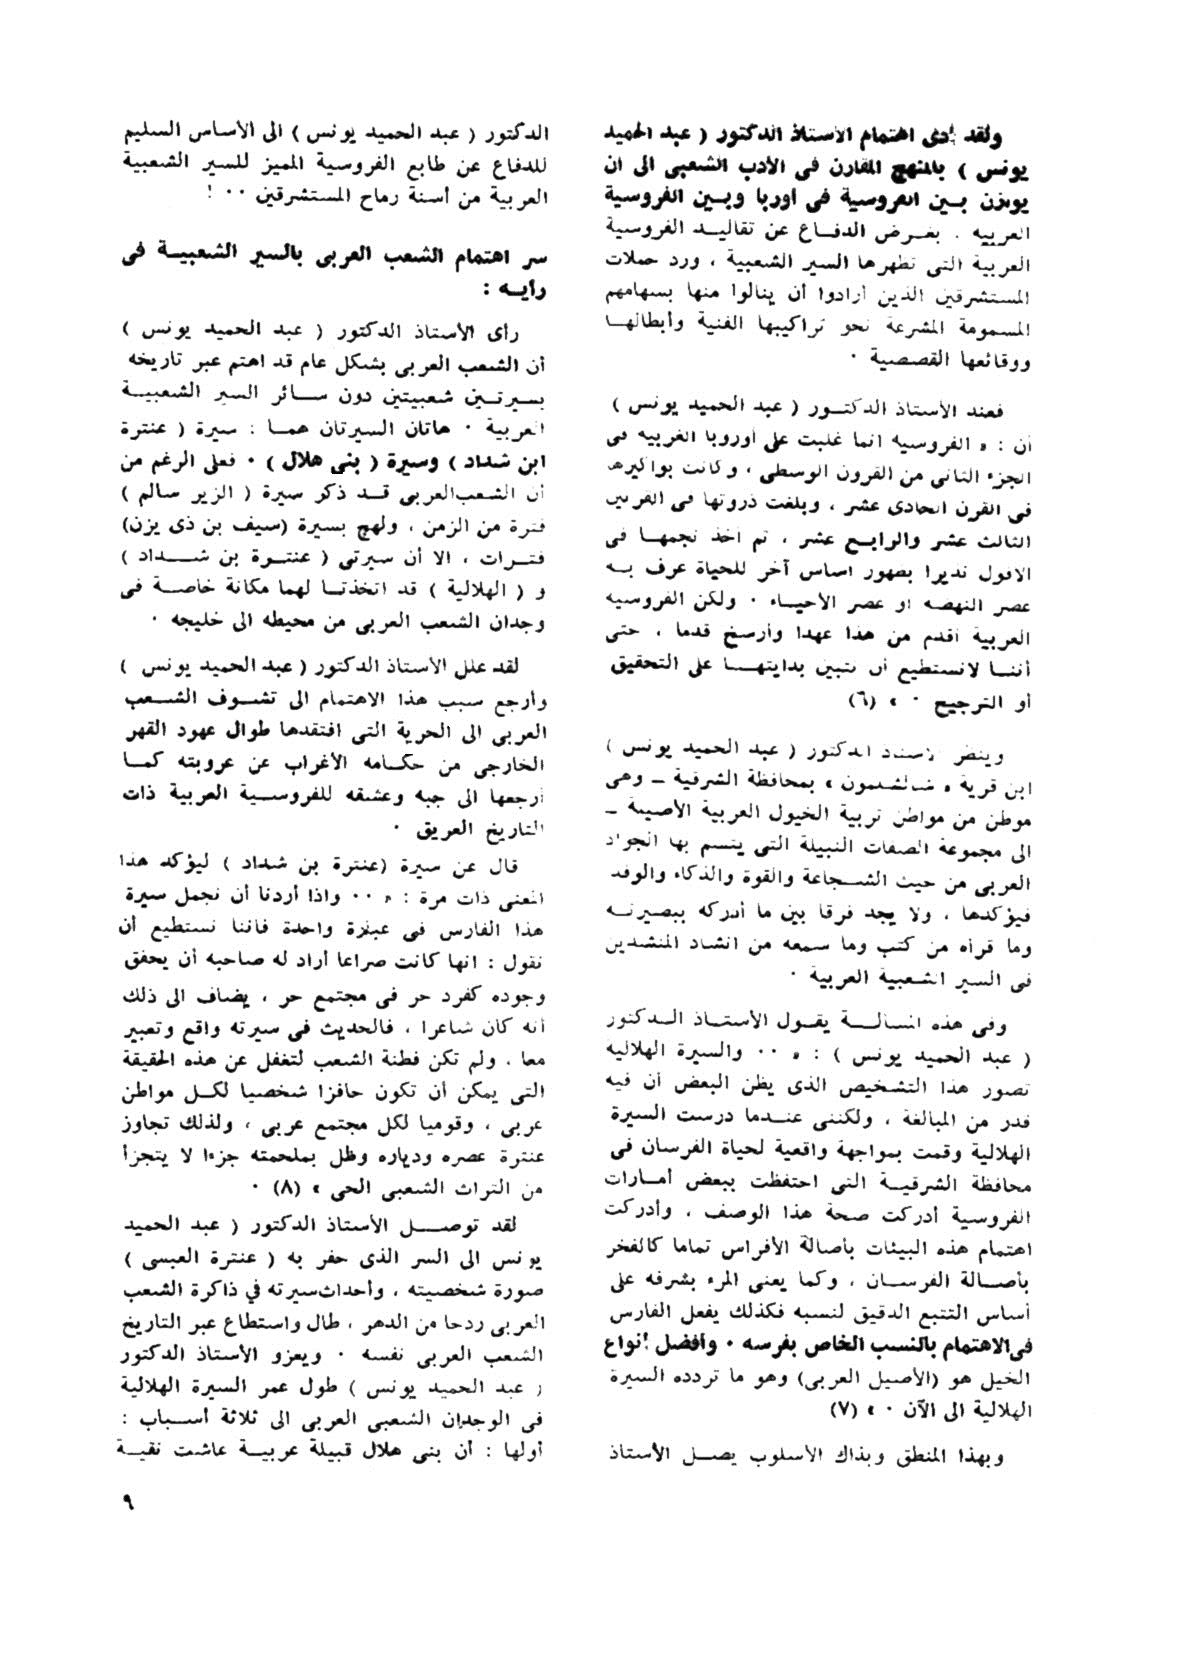 ولقد أدى اهتمام الأستاذ الدكتور ( عبد الحميد
يونس ) بالمنهج المقارن فى الأدب الشعبى الى ان
يوازن بين الفروسية فى أوربا وبين الفروسية
العربية . بغرض الدفاع عن تقاليد الفروسية
العربية التى تظهرها السير الشعبية ، ورد حملات
المستشرقين الذين أرادوا أن ينالوا منها بسهامهم
المسمومة المشرعة نحو تراكيبها الفنية وأبطالها
ووقائعها القصصية ٠
فعند الأستاذ الدكتور ( عبد الحميد يونس )
أن : « الفروسية انما غلبت على أوروبا الغربية فى
الجزء الثانى من القرون الوسطى ، وكانت بواكيرها
فى القرن الحادى عشر ، وبلغت ذروتها فى القرنين
الثالث عشر والرابع عشر ، ثم أخذ نجمها فى
الافول نذيرا بظهور أساس آخر للحياة عرف به
عصر النهضة او عصر الأحياء ٠ ولكن الفروسية
العربية أقدم من هذا عهدا وأرسخ قدما ، حتى
أننا لانستطيع أن نتبين بدايتها على التحقيق
أو الترجيح ٠ » (٦)
وينظر الأستاذ الدكتور ( عبد الحميد يونس )
ابن قرية « شلشلمون » بمحافظة الشرقية ــ وهى
موطن من مواطن تربية الخيول العربية الأصيلة ــ
الى مجموعة الصفات النبيلة التى يتسم بها الجواد
العربى من حيث الشجاعة والقوة والذكاء والوفاء
فيؤكدها ، ولا يجد فرقا بين ما أدركه ببصيرته
وما قرأه من كتب وما سمعه من انشاد المنشدين
فى السير الشعبية العربية ٠
وفى هذه المسألة يقول الأستاذ الدكتور
( عبد الحميد يونس ) : « ٠٠ والسيرة الهلالية
تصور هذا التشخيص الذى يظن البعض أن فيه
قدر من المبالغة ، ولكننى عندما درست السيرة
الهلالية وقمت بمواجهة واقعية لحياة الفرسان فى
محافظة الشرقية التى احتفظت ببعض أمارات
الفروسية أدركت صحة هذا الوصف ، وأدركت
اهتمام هذه البيئات بأصالة الأفراس تماما كالفخر
بأصالة الفرسان ، وكما يعنى المرء بشرفه على
أساس التتبع الدقيق لنسبه فكذلك يفعل الفارس
فى الاهتمام بالنسب الخاص بفرسه ٠ وأفضل أنواع
الخيل هو (الأصيل العربى) وهو ما تردده السيرة
الهلالية الى الآن ٠ » (٧)
وبهذا المنطق وبذاك الأسلوب يصل الأستاذ
الدكتور ( عبد الحميد يونس ) الى الأساس السليم
للدفاع عن طابع الفروسية المميز للسير الشعبية
العربية من أسنة رماح المستشرقين ٠٠ !
سر اهتمام الشعب العربى بالسير الشعبية فى
رأيه :
رأى الأستاذ الدكتور ( عبد الحميد يونس )
أن الشعب العربى بشكل عام قد اهتم عبر تاريخه
بسيرتين شعبيتين دون سائر السير الشعبية
العربية ٠ هاتان السيرتان هما : سيرة ( عنترة
ابن شداد ) وسيرة ( بنى هلال ) ٠ فعلى الرغم من
أن الشعب العربى قد ذكر سيرة ( الزير سالم )
فترة من الزمن ، ولهج بسيرة (سيف بن ذى يزن)
فترات ، الا أن سيرتى ( عنترة بن شداد )
و ( الهلالية ) قد اتخذتا لهما مكانة خاصة فى
وجدان الشعب العربى من محيطه الى خليجه ٠
لقد علل الأستاذ الدكتور ( عبد الحميد يونس )
وأرجع سبب هذا الاهتمام الى تشوف الشعب
العربى الى الحرية التى افتقدها طوال عهود القهر
الخارجى من حكامه الأغراب عن عروبته كما
أرجعها الى حبه وعشقه للفروسية العربية ذات
التاريخ العريق ٠
قال عن سيرة (عنترة بن شداد ) ليؤكد هذا
المعنى ذات مرة : « ٠٠ واذا أردنا أن نجمل سيرة
هذا الفارس فى عبارة واحدة فاننا نستطيع أن
نقول : انها كانت صراعا أراد له صاحبه أن يحقق
وجوده كفرد حر فى مجتمع حر ، يضاف الى ذلك
أنه كان شاعرا ، فالحديث فى سيرته واقع وتعبير
معا ، ولم تكن فطنة الشعب لتغفل عن هذه الحقيقة
التى يمكن أن تكون حافزا شخصيا لكل مواطن
عربى ، وقوميا لكل مجتمع عربى ، ولذلك تجاوز
عنترة عصره ودياره وظل بملحمته جزءا لا يتجزأ
من التراث الشعبى الحى » (٨) ٠
لقد توصل الأستاذ الدكتور ( عبد الحميد
يونس الى السر الذى حفر به ( عنترة العبسى )
صورة شخصيته ، وأحداث سيرته فى ذاكرة الشعب
العربى ردحا من الدهر ، طال واستطاع عبر التاريخ
الشعب العربى نفسه ٠ ويعزو الأستاذ الدكتور
( عبد الحميد يونس ) طول عمر السيرة الهلالية
فى الوجدان الشعبى العربى الى ثلاثة أسباب :
أولها : أن بنى هلال قبيلة عربية عاشت نقية
٩